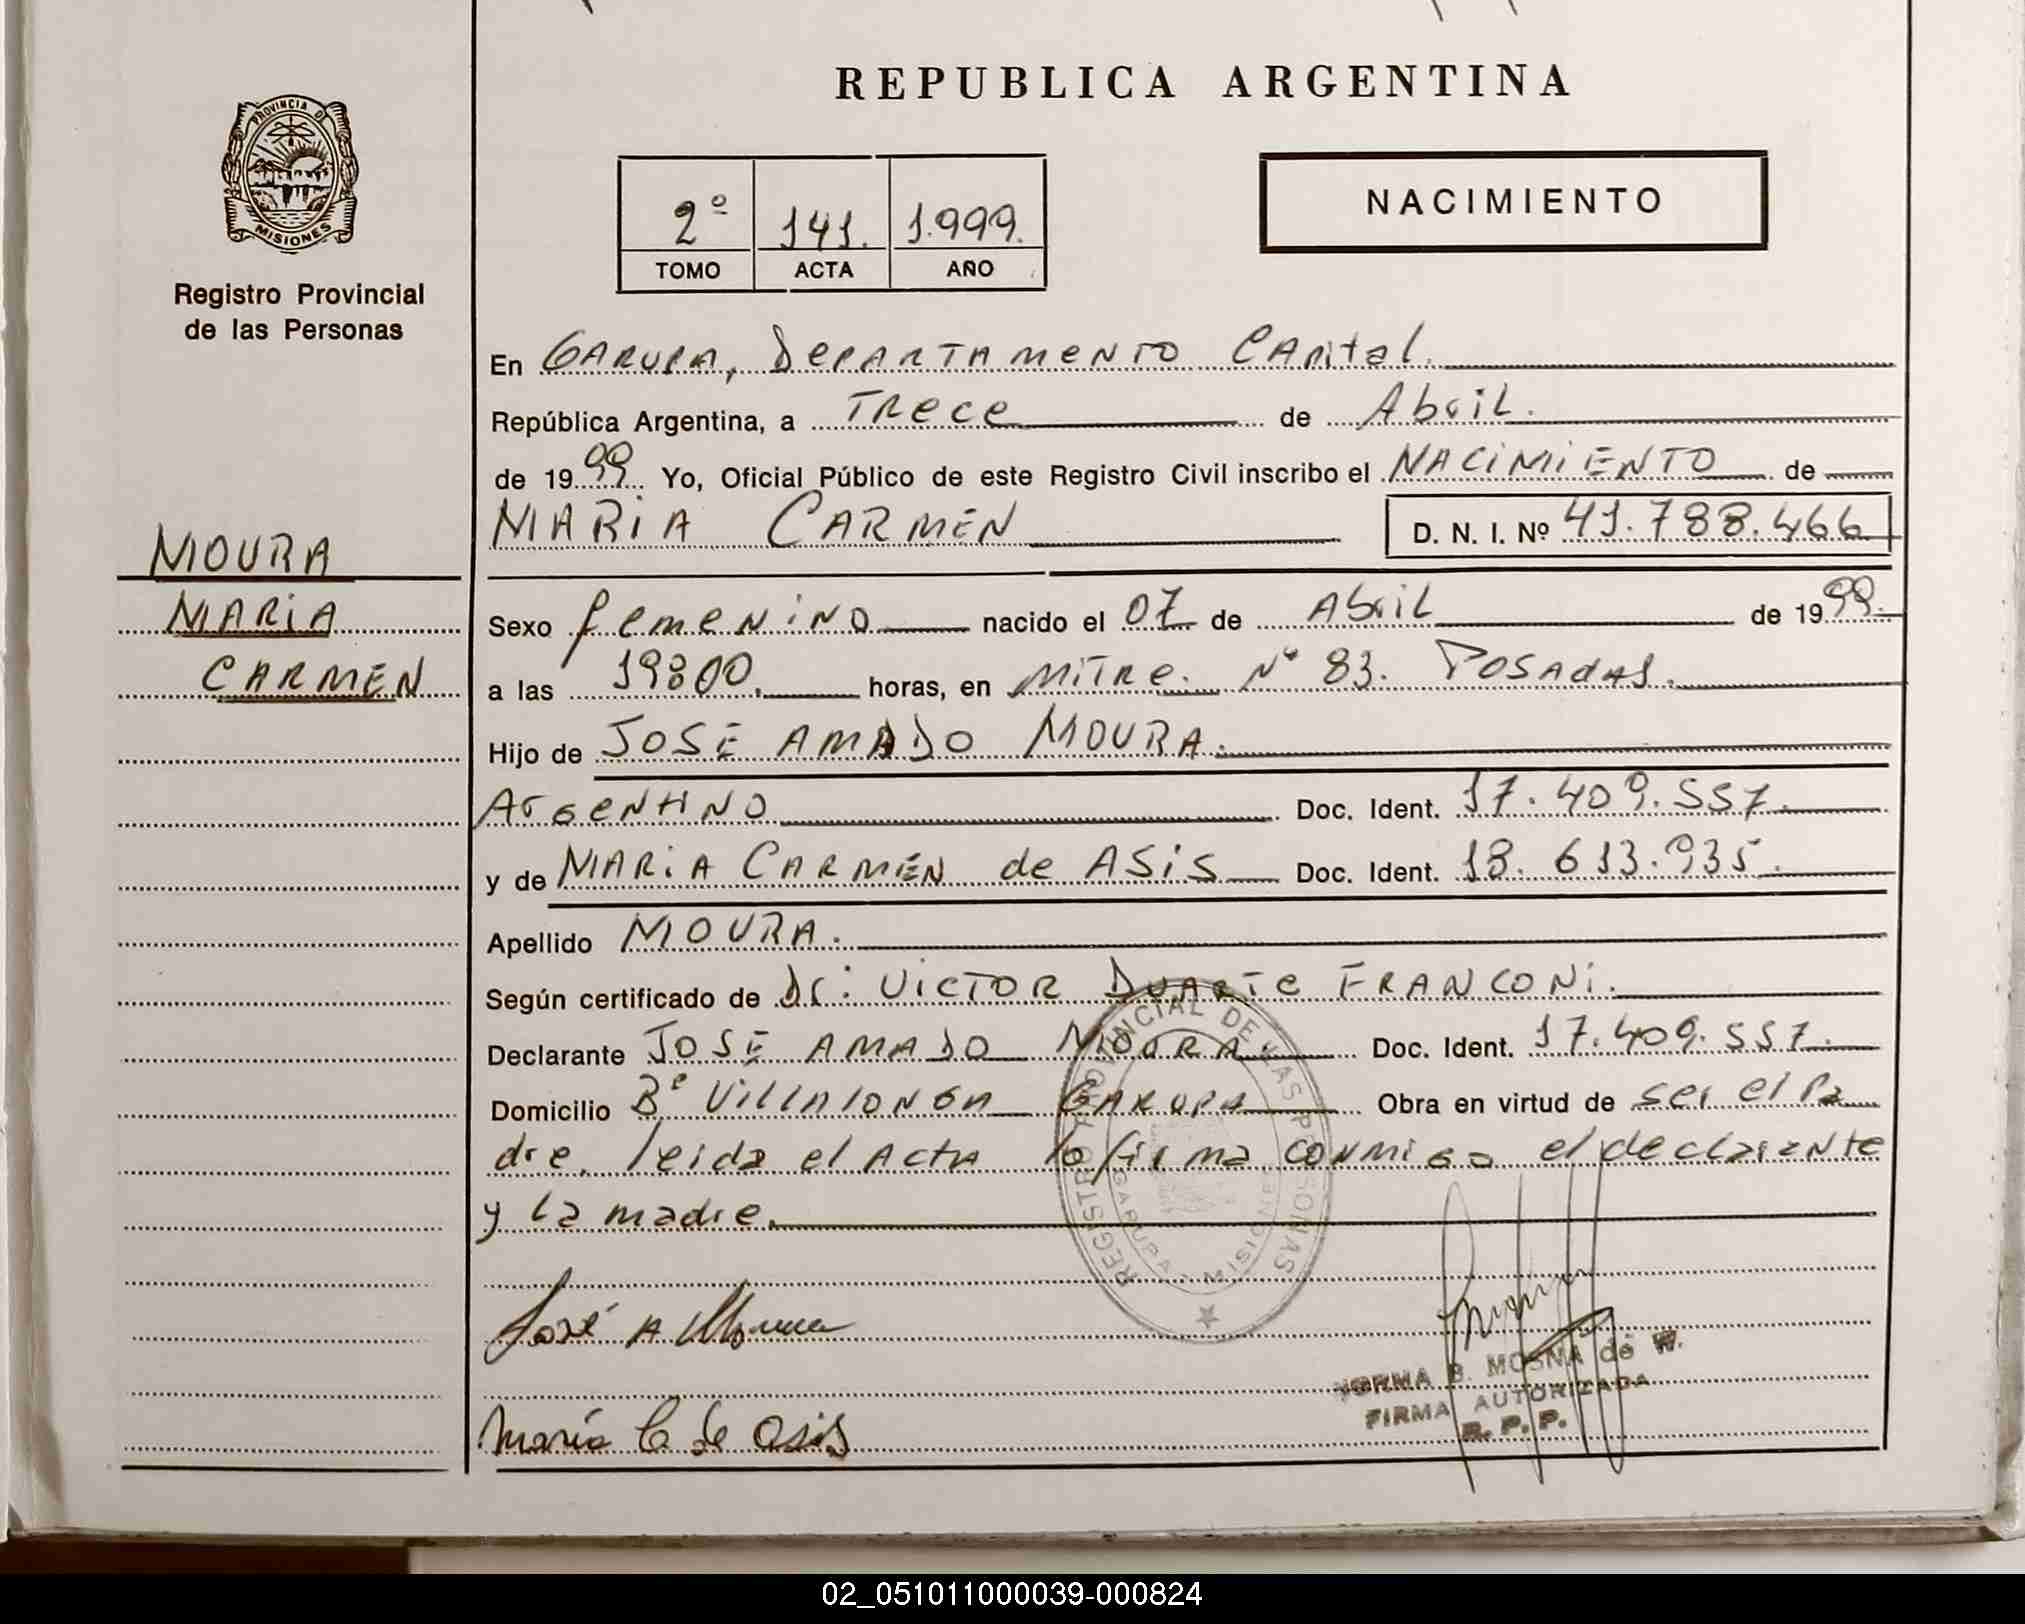 REPUBLICA ARGENTINA
PROVINCIA DE
MISIONES
Registro Provincial
de las Personas
2º 141. 1.999.
TOMO ACTA AÑO
NACIMIENTO
En GARUPA, DEPARTAMENTO CAPITAL.
República Argentina, a TRECE de Abril.
de 1999 Yo, Oficial Público de este Registro Civil inscribo el NACIMIENTO de
MARIA CARMEN D. N. I. Nº 41.788.466
MOURA
MARIA
CARMEN
Sexo femenino nacido el 07 de Abril de 1999.
a las 19:00. horas, en MITRE. Nº 83. POSADAS.
Hijo de JOSE AMADO MOURA.
Argentino Doc. Ident. 17.409.557.
y de MARIA CARMEN de ASIS Doc. Ident. 18.613.935.
Apellido MOURA.
Según certificado de Dr: VICTOR DUARTE FRANCONI.
Declarante JOSE AMADO MOURA. Doc. Ident. 17.409.557.
Domicilio Bº VILLALONGA GARUPA Obra en virtud de ser el Pa
dre. leida el Acta lo firma conmigo el declarante
y la madre.
REGISTRO PROVINCIAL DE LAS PERSONAS
GARUPA - MISIONES
José A Moura
NORMA B. MOSNA de W.
FIRMA AUTORIZADA
R. P. P.
María C de Asis
02_051011000039-000824